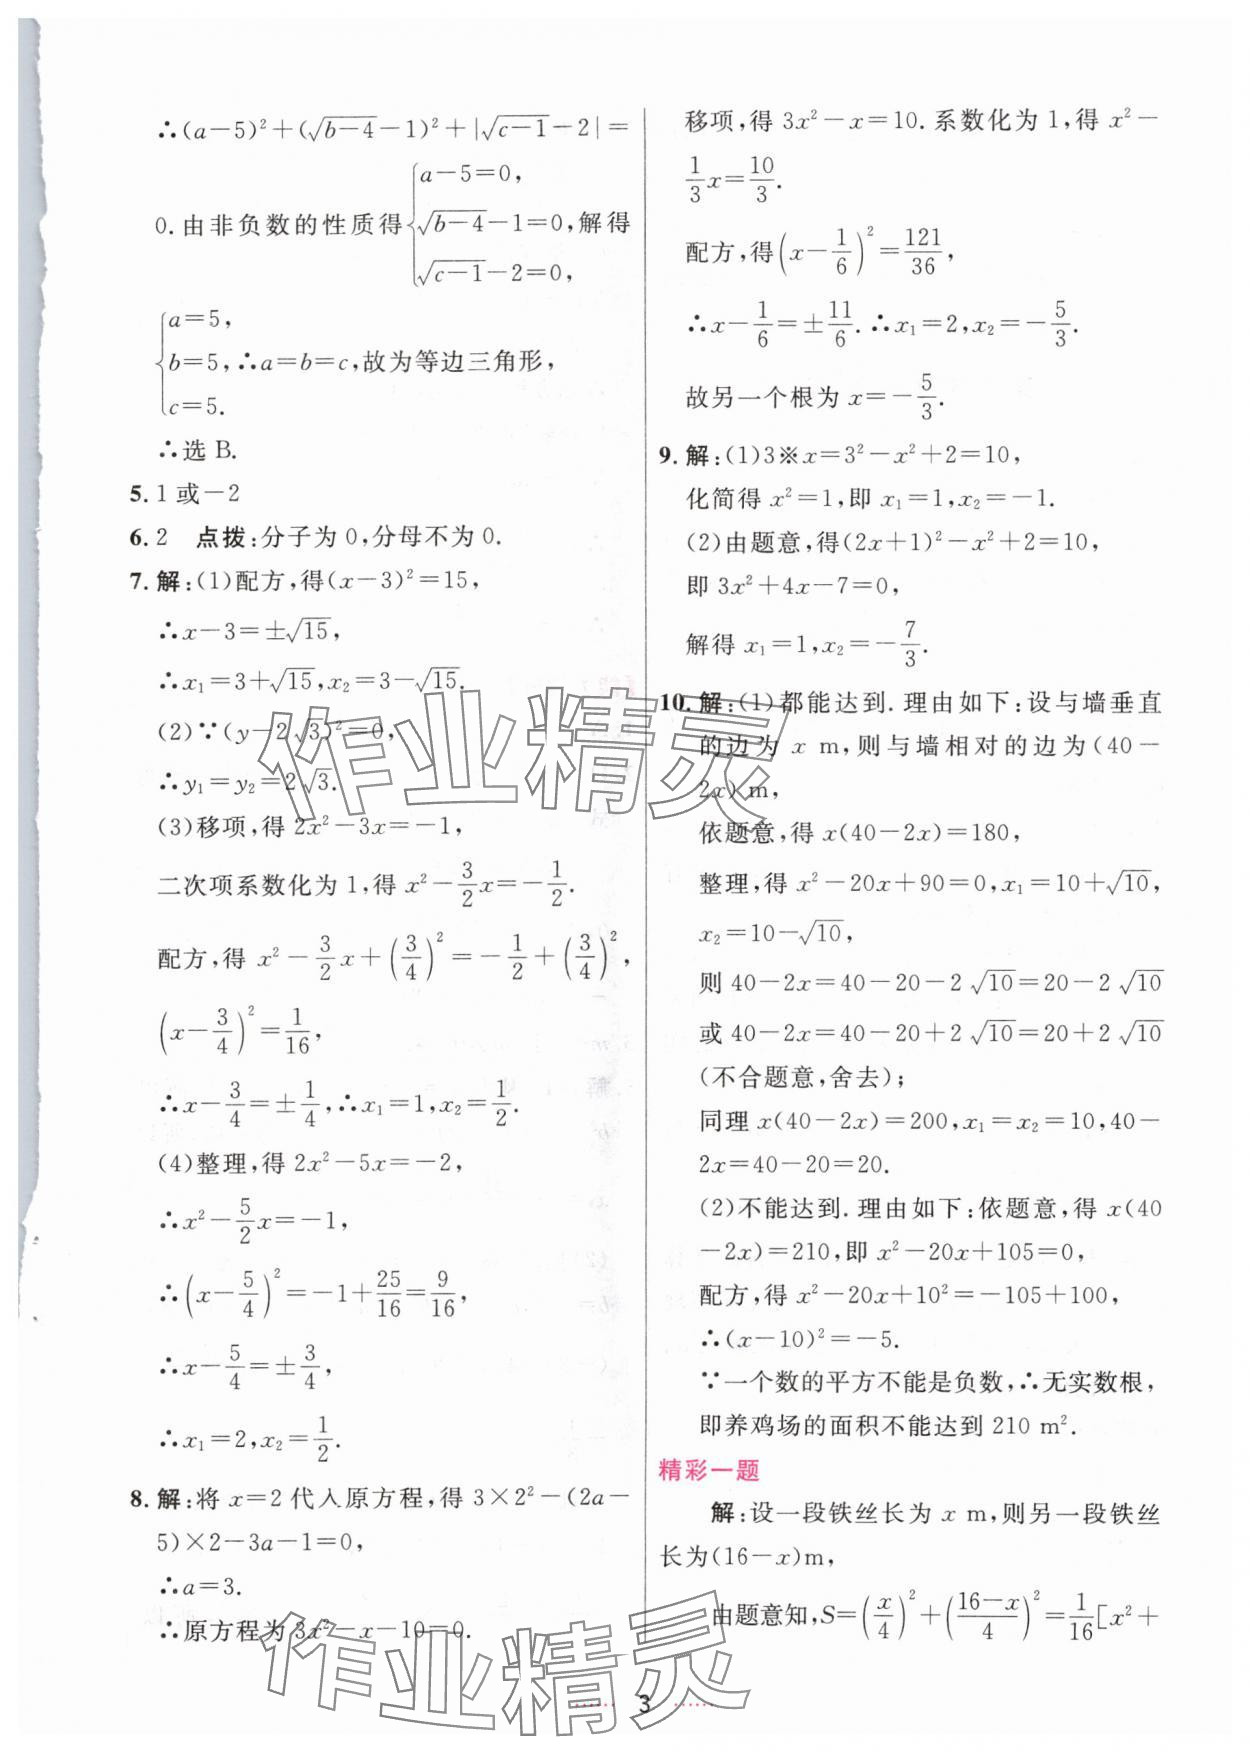 ∴(a-5)²+(√(b-4)-1)²+|√(c-1)-2|=
0.由非负数的性质得{a-5=0, √(b-4)-1=0, √(c-1)-2=0, 解得
{a=5, b=5, c=5. ∴a=b=c,故为等边三角形,
∴选 B.
5. 1或-2
6. 2 点拨:分子为0,分母不为0.
7. 解:(1)配方,得(x-3)²=15,
∴x-3=±√15,
∴x₁=3+√15,x₂=3-√15.
(2)∵(y-2√3)²=0,
∴y₁=y₂=2√3.
(3)移项,得 2x²-3x=-1,
二次项系数化为1,得 x²-3/2x=-1/2.
配方,得 x²-3/2x+(3/4)²=-1/2+(3/4)²,
(x-3/4)²=1/16,
∴x-3/4=±1/4,∴x₁=1,x₂=1/2.
(4)整理,得 2x²-5x=-2,
∴x²-5/2x=-1,
∴(x-5/4)²=-1+25/16=9/16,
∴x-5/4=±3/4,
∴x₁=2,x₂=1/2.
8. 解:将 x=2 代入原方程,得 3×2²-(2a-
5)×2-3a-1=0,
∴a=3.
∴原方程为 3x²-x-10=0.
移项,得 3x²-x=10.系数化为1,得 x²-
1/3x=10/3.
配方,得(x-1/6)²=121/36,
∴x-1/6=±11/6.∴x₁=2,x₂=-5/3.
故另一个根为 x=-5/3.
9. 解:(1)3※x=3²-x²+2=10,
化简得 x²=1,即 x₁=1,x₂=-1.
(2)由题意,得(2x+1)²-x²+2=10,
即 3x²+4x-7=0,
解得 x₁=1,x₂=-7/3.
10. 解:(1)都能达到.理由如下:设与墙垂直
的边为 x m,则与墙相对的边为(40-
2x)m,
依题意,得 x(40-2x)=180,
整理,得 x²-20x+90=0,x₁=10+√10,
x₂=10-√10,
则 40-2x=40-20-2√10=20-2√10
或 40-2x=40-20+2√10=20+2√10
(不合题意,舍去);
同理 x(40-2x)=200,x₁=x₂=10,40-
2x=40-20=20.
(2)不能达到.理由如下:依题意,得 x(40
-2x)=210,即 x²-20x+105=0,
配方,得 x²-20x+10²=-105+100,
∴(x-10)²=-5.
∵一个数的平方不能是负数,∴无实数根,
即养鸡场的面积不能达到 210 m².
精彩一题
解:设一段铁丝长为 x m,则另一段铁丝
长为(16-x)m,
由题意知,S=(x/4)²+((16-x)/4)²=1/16[x²+
3
作业精灵
作业精灵